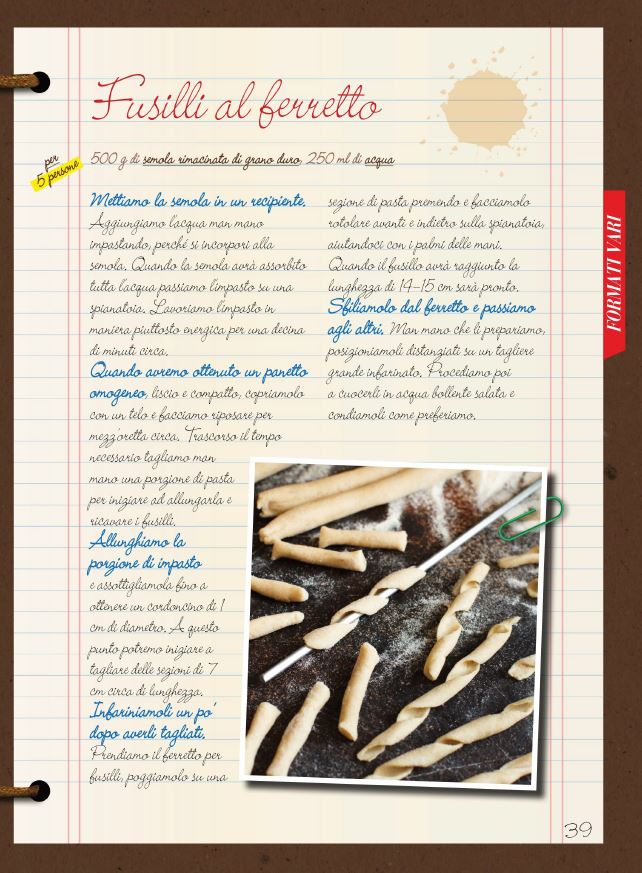 Fusilli al ferretto
per
5 persone
500 g di semola rimacinata di grano duro, 250 ml di acqua
Mettiamo la semola in un recipiente.
Aggiungiamo l'acqua man mano
impastando, perché si incorpori alla
semola. Quando la semola avrà assorbito
tutta l'acqua passiamo l'impasto su una
spianatoia. Lavoriamo l'impasto in
maniera piuttosto energica per una decina
di minuti circa.
Quando avremo ottenuto un panetto
omogeneo, liscio e compatto, copriamolo
con un telo e facciamo riposare per
mezz'oretta circa. Trascorso il tempo
necessario tagliamo man
mano una porzione di pasta
per iniziare ad allungarla e
ricavare i fusilli.
Allunghiamo la
porzione di impasto
e assottigliamola fino a
ottenere un cordoncino di 1
cm di diametro. A questo
punto potremo iniziare a
tagliare delle sezioni di 7
cm circa di lunghezza.
Infariniamoli un po'
dopo averli tagliati.
Prendiamo il ferretto per
fusilli, poggiamolo su una
sezione di pasta premendo e facciamolo
rotolare avanti e indietro sulla spianatoia,
aiutandoci con i palmi delle mani.
Quando il fusillo avrà raggiunto la
lunghezza di 14-15 cm sarà pronto.
Sfiliamolo dal ferretto e passiamo
agli altri. Man mano che li prepariamo,
posizioniamoli distanziati su un tagliere
grande infarinato. Procediamo poi
a cuocerli in acqua bollente salata e
condiamoli come preferiamo.
FORMATI VARI
39